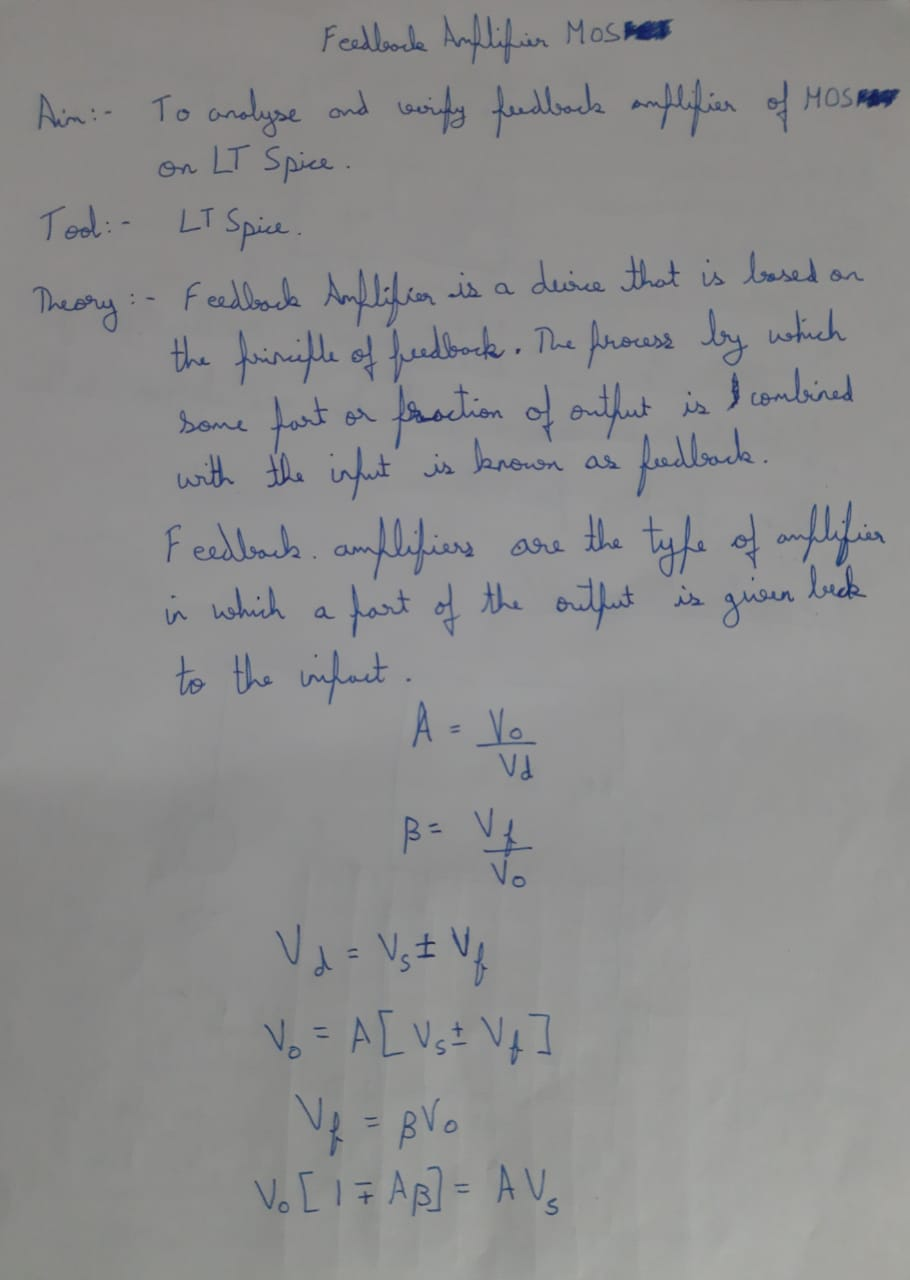 Feedback Amplifier MOS
Aim:- To analyse and verify feedback amplifier of MOS
on LT Spice.
Tool:- LT Spice.
Theory:- Feedback Amplifier is a device that is based on
the principle of feedback. The process by which
some part or fraction of output is combined
with the input is known as feedback.
Feedback. amplifiers are the type of amplifier
in which a part of the output is given back
to the input.
A = Vo/Vd
β = Vf/Vo
Vd = Vs ± Vf
Vo = A[Vs ± Vf]
Vf = βVo
Vo[1 ∓ Aβ] = AVs